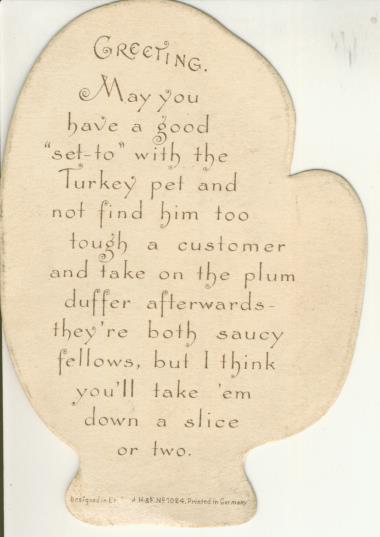 GREETING.
May you
have a good
"set-to" with the
Turkey pet and
not find him too
tough a customer
and take on the plum
duffer afterwards-
they're both saucy
fellows, but I think
you'll take 'em
down a slice
or two.
Designed in H&F. No 1024. Printed in Germany